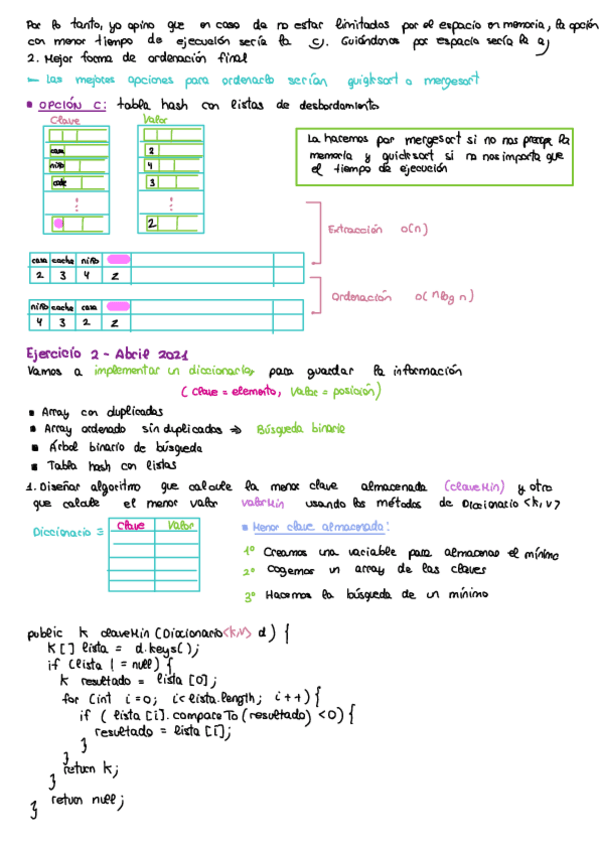 Por lo tanto, yo opino que en caso de no estar limitados por el espacio en memoria, la opción
con menor tiempo de ejecución sería la c). Guiándonos por espacio sería la a)
2. Mejor forma de ordenación final
← Las mejores opciones para ordenarlo serían quicksort o mergesort
▪ OPCIÓN C: tabla hash con listas de desbordamiento
Clave Valor
casa 2
niño 4
coche 3
⋮ ⋮
2
La hacemos por mergesort si no nos preocupe la
memoria y quicksort si no nos importa que
el tiempo de ejecución
Extracción O(n)
casa coche niño
2 3 4 2
Ordenación O(n log n)
niño coche casa
4 3 2 2
Ejercicio 2 - Abril 2021
Vamos a implementar un diccionario, para guardar la información
(clave = elemento, valor = posición)
▪ Array con duplicados
▪ Array ordenado sin duplicados ⇒ Búsqueda binaria
▪ Árbol binario de búsqueda
▪ Tabla hash con listas
1. Diseñar algoritmo que calcule la menor clave almacenada (claveMin) y otro
que calcule el menor valor valorMin usando los métodos de Diccionario <k,v>
Diccionario ≡ Clave Valor
▪ Menor clave almacenada:
1º Creamos una variable para almacenar el mínimo
2º Cogemos un array de las claves
3º Hacemos la búsqueda de un mínimo
public k claveMin (Diccionario<k,v> d) {
k[] lista = d.keys();
if (lista != null) {
k resultado = lista [0];
for (int i=0; i<lista.length; i++) {
if ( lista [i]. compareTo (resultado) <0) {
resultado = lista [i];
}
}
return k;
}
return null;
}